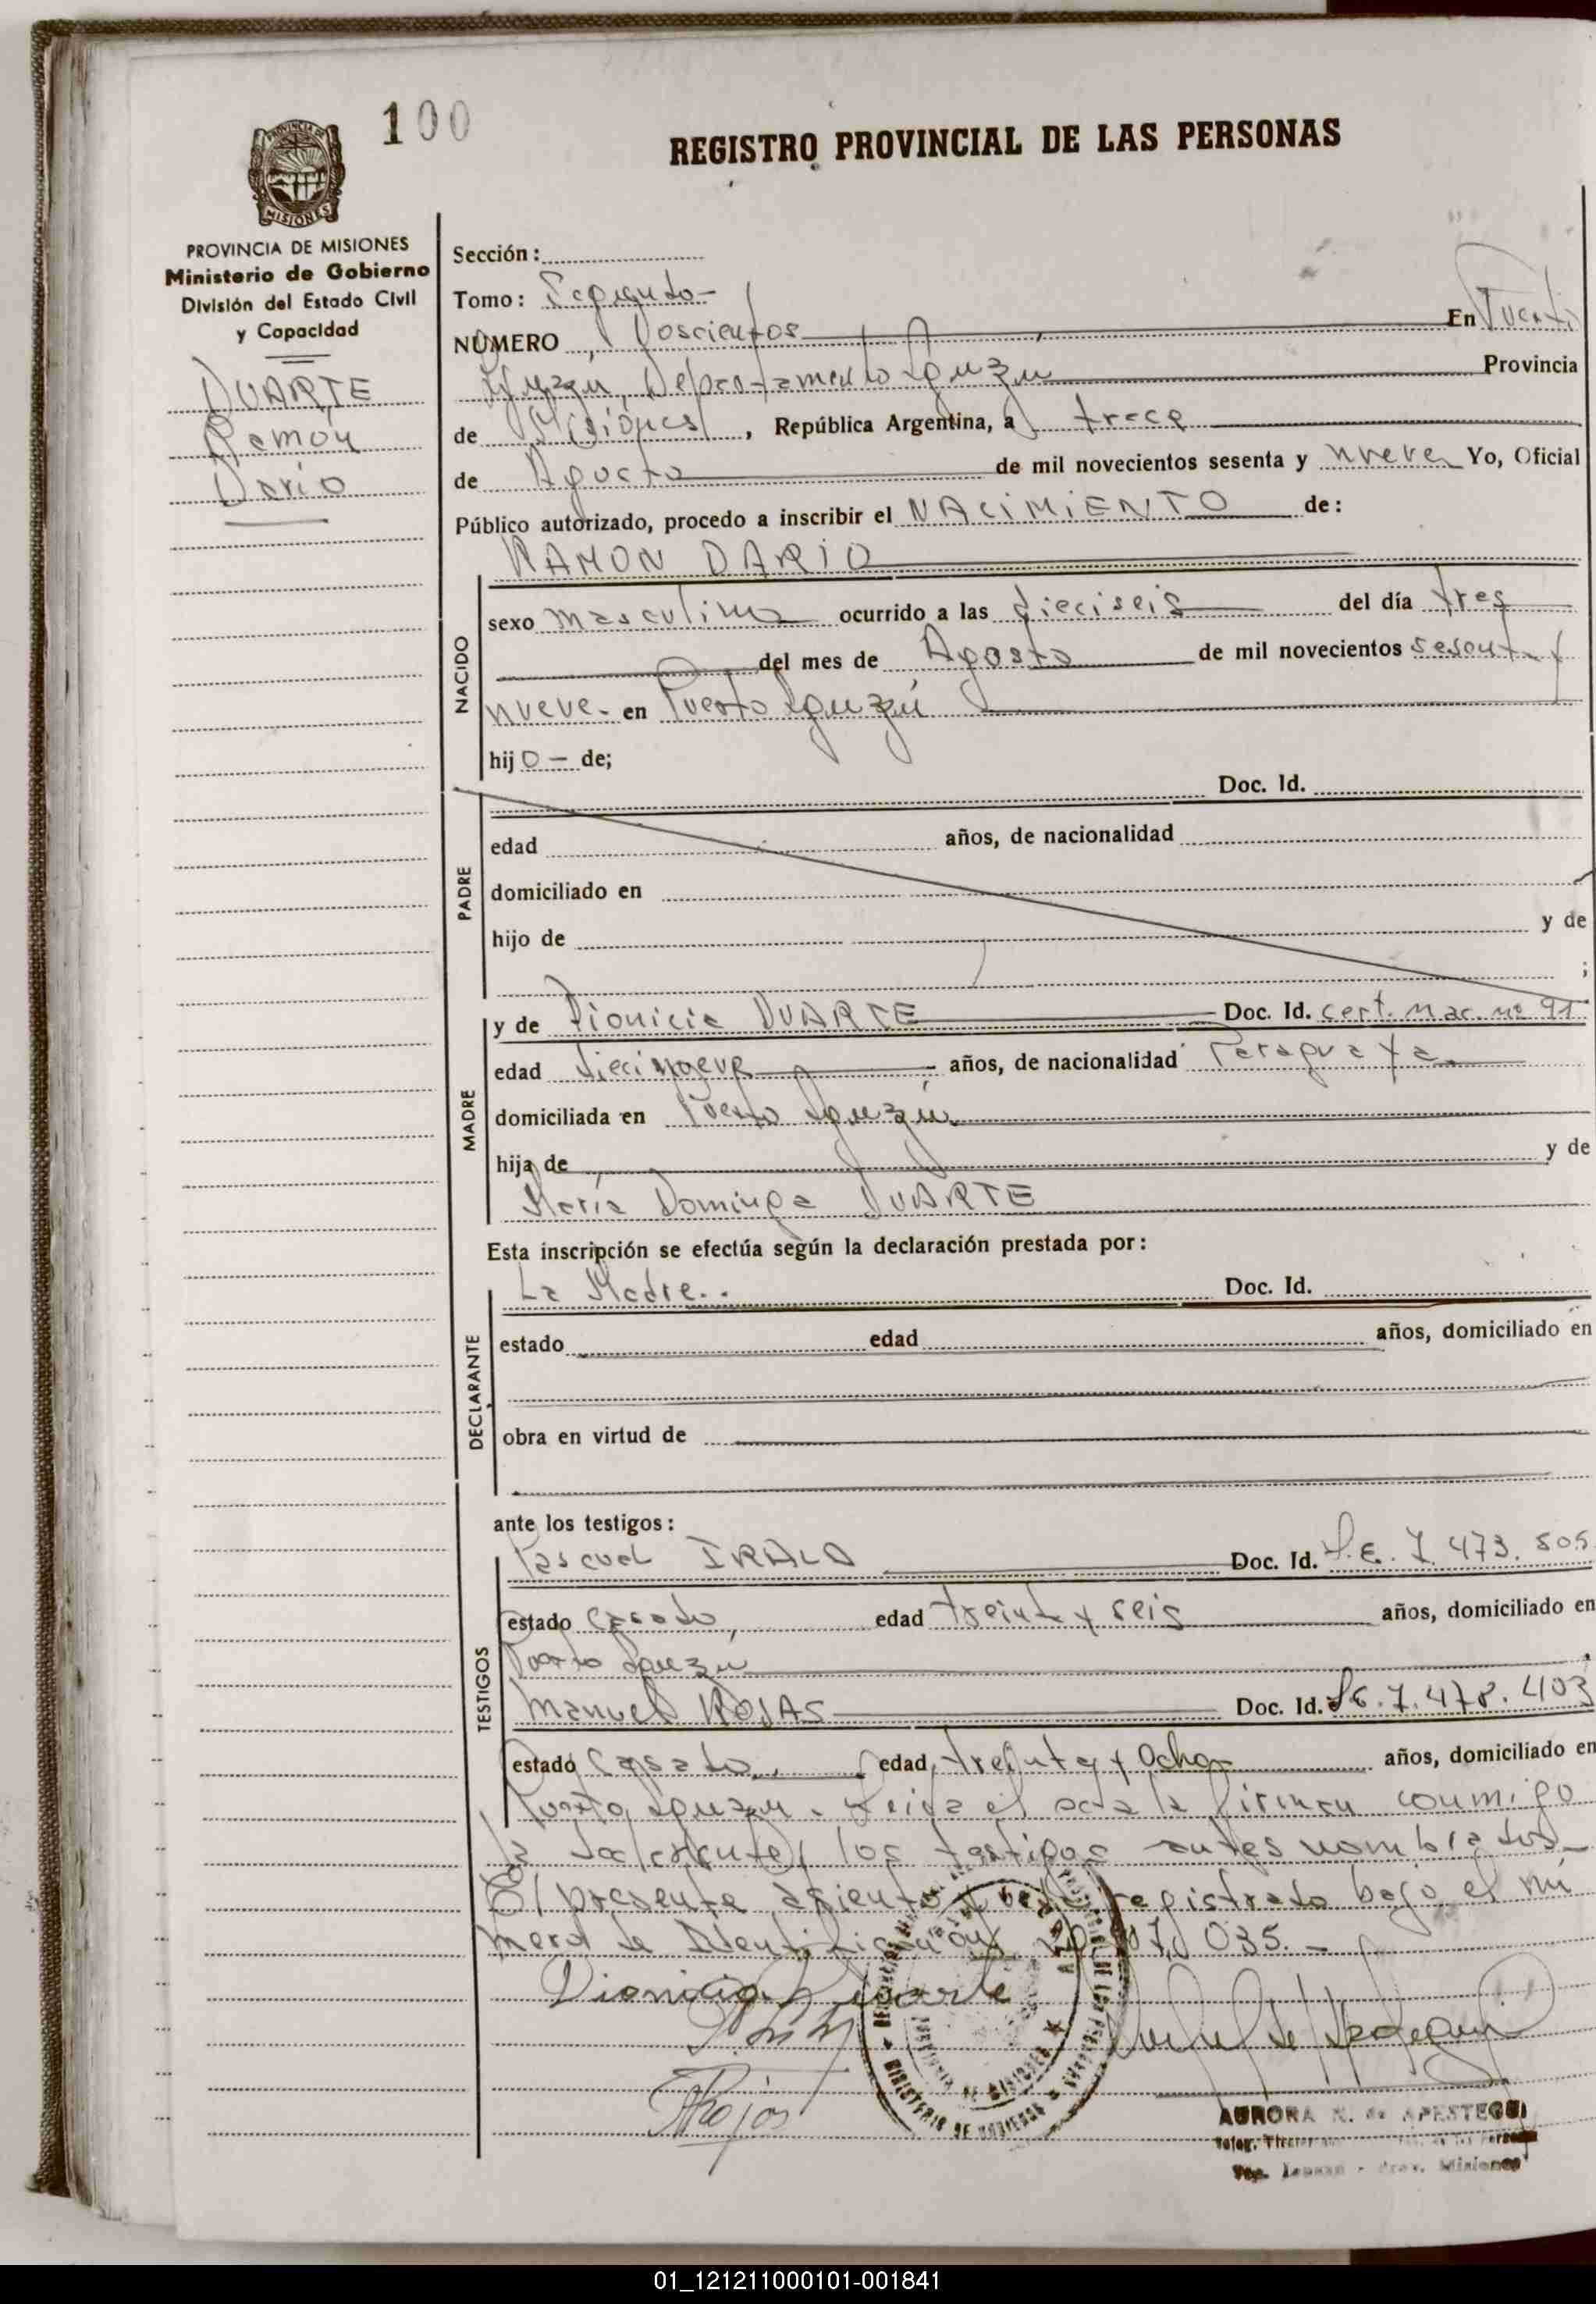 100
REGISTRO PROVINCIAL DE LAS PERSONAS
PROVINCIA DE
MISIONES
PROVINCIA DE MISIONES
Ministerio de Gobierno
División del Estado Civil
y Capacidad
DUARTE
Ramón
Darío
Sección:
Tomo: Segundo-
NÚMERO Doscientos En Puerto
Iguazu, Departamento Iguazú Provincia
de Misiones, República Argentina, a trece
de Agosto de mil novecientos sesenta y nueve Yo, Oficial
Público autorizado, procedo a inscribir el NACIMIENTO de:
RAMON DARIO
NACIDO
sexo masculino ocurrido a las dieciseis del día tres
del mes de Agosto de mil novecientos sesenta y
nueve- en Puerto Iguazú
hij o - de;
PADRE
Doc. Id.
edad años, de nacionalidad
domiciliado en
hijo de y de
;
MADRE
y de Dionicia DUARTE Doc. Id. cert. nac. nº 91
edad diecinueve años, de nacionalidad Paraguaya
domiciliada en Puerto Iguazú
hija de y de
María Dominga DUARTE
Esta inscripción se efectúa según la declaración prestada por:
DECLARANTE
La Madre.. Doc. Id.
estado edad años, domiciliado en
obra en virtud de
ante los testigos:
TESTIGOS
Pascual IRALA Doc. Id. L.E. 7.473.505
estado casado, edad treinta y seis años, domiciliado en
Puerto Iguazú
Manuel ROJAS Doc. Id. LE.7.478.403
estado casado edad treinta y ocho años, domiciliado en
Puerto Iguazu. Leida el acta la firman conmigo
la declarante y los testigos antes nombrados-
El presente asiento registrado bajo el nú
mero de Identificación 035.-
Dionicia Duarte
Rojas
AURORA N. de APESTEGUI
Misiones
01_121211000101-001841